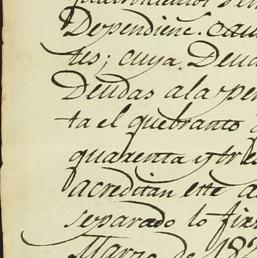 Dependien.
tes; cuya Deud
Deudas ala pen
ta el quebranto
quarenta y tres
acreditan este a
separado lo firm
Marzo de 182